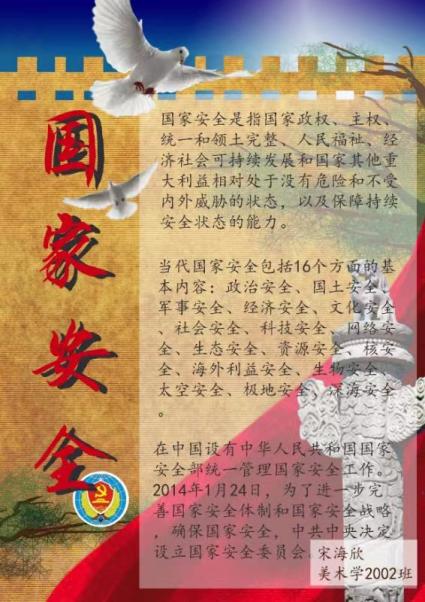 国家安全
国家安全是指国家政权、主权、
统一和领土完整、人民福祉、经
济社会可持续发展和国家其他重
大利益相对处于没有危险和不受
内外威胁的状态，以及保障持续
安全状态的能力。
当代国家安全包括16个方面的基
本内容：政治安全、国土安全、
军事安全、经济安全、文化安全
、社会安全、科技安全、网络安
全、生态安全、资源安全、核安
全、海外利益安全、生物安全、
太空安全、极地安全、深海安全
。
在中国设有中华人民共和国国家
安全部统一管理国家安全工作。
2014年1月24日，为了进一步完
善国家安全体制和国家安全战略
，确保国家安全，中共中央决定
设立国家安全委员会。
宋海欣
美术学2002班